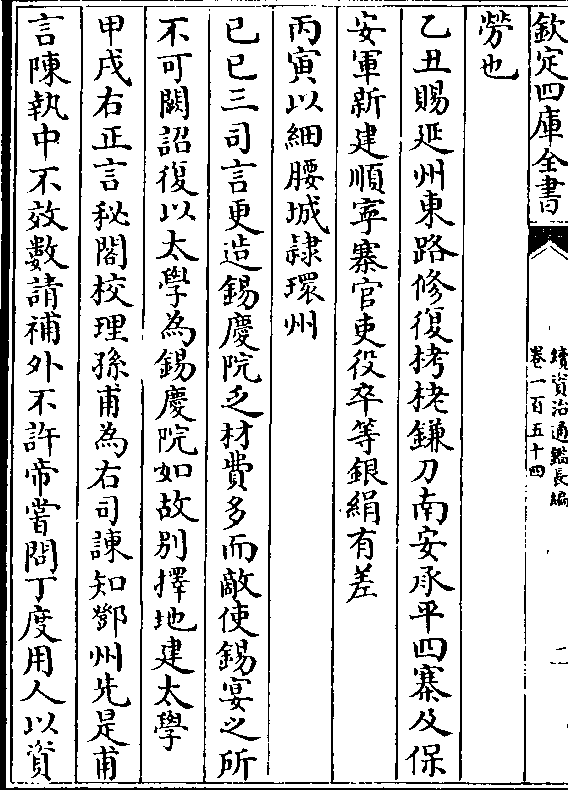 欽定四庫全書
續資治通鑑長編
卷一百五十四
二
勞也
乙丑賜延州東路修復栲栳鎌刀南安承平四寨及保
安軍新建順寧寨官吏役卒等銀絹有差
丙寅以細腰城隷環州
已巳三司言更造錫慶院乏材費多而敵使錫宴之所
不可闕詔復以太學為錫慶院如故别擇地建太學
甲戌右正言秘閣校理孫甫為右司諫知鄧州先是甫
言陳執中不效數請補外不許帝嘗問丁度用人以資